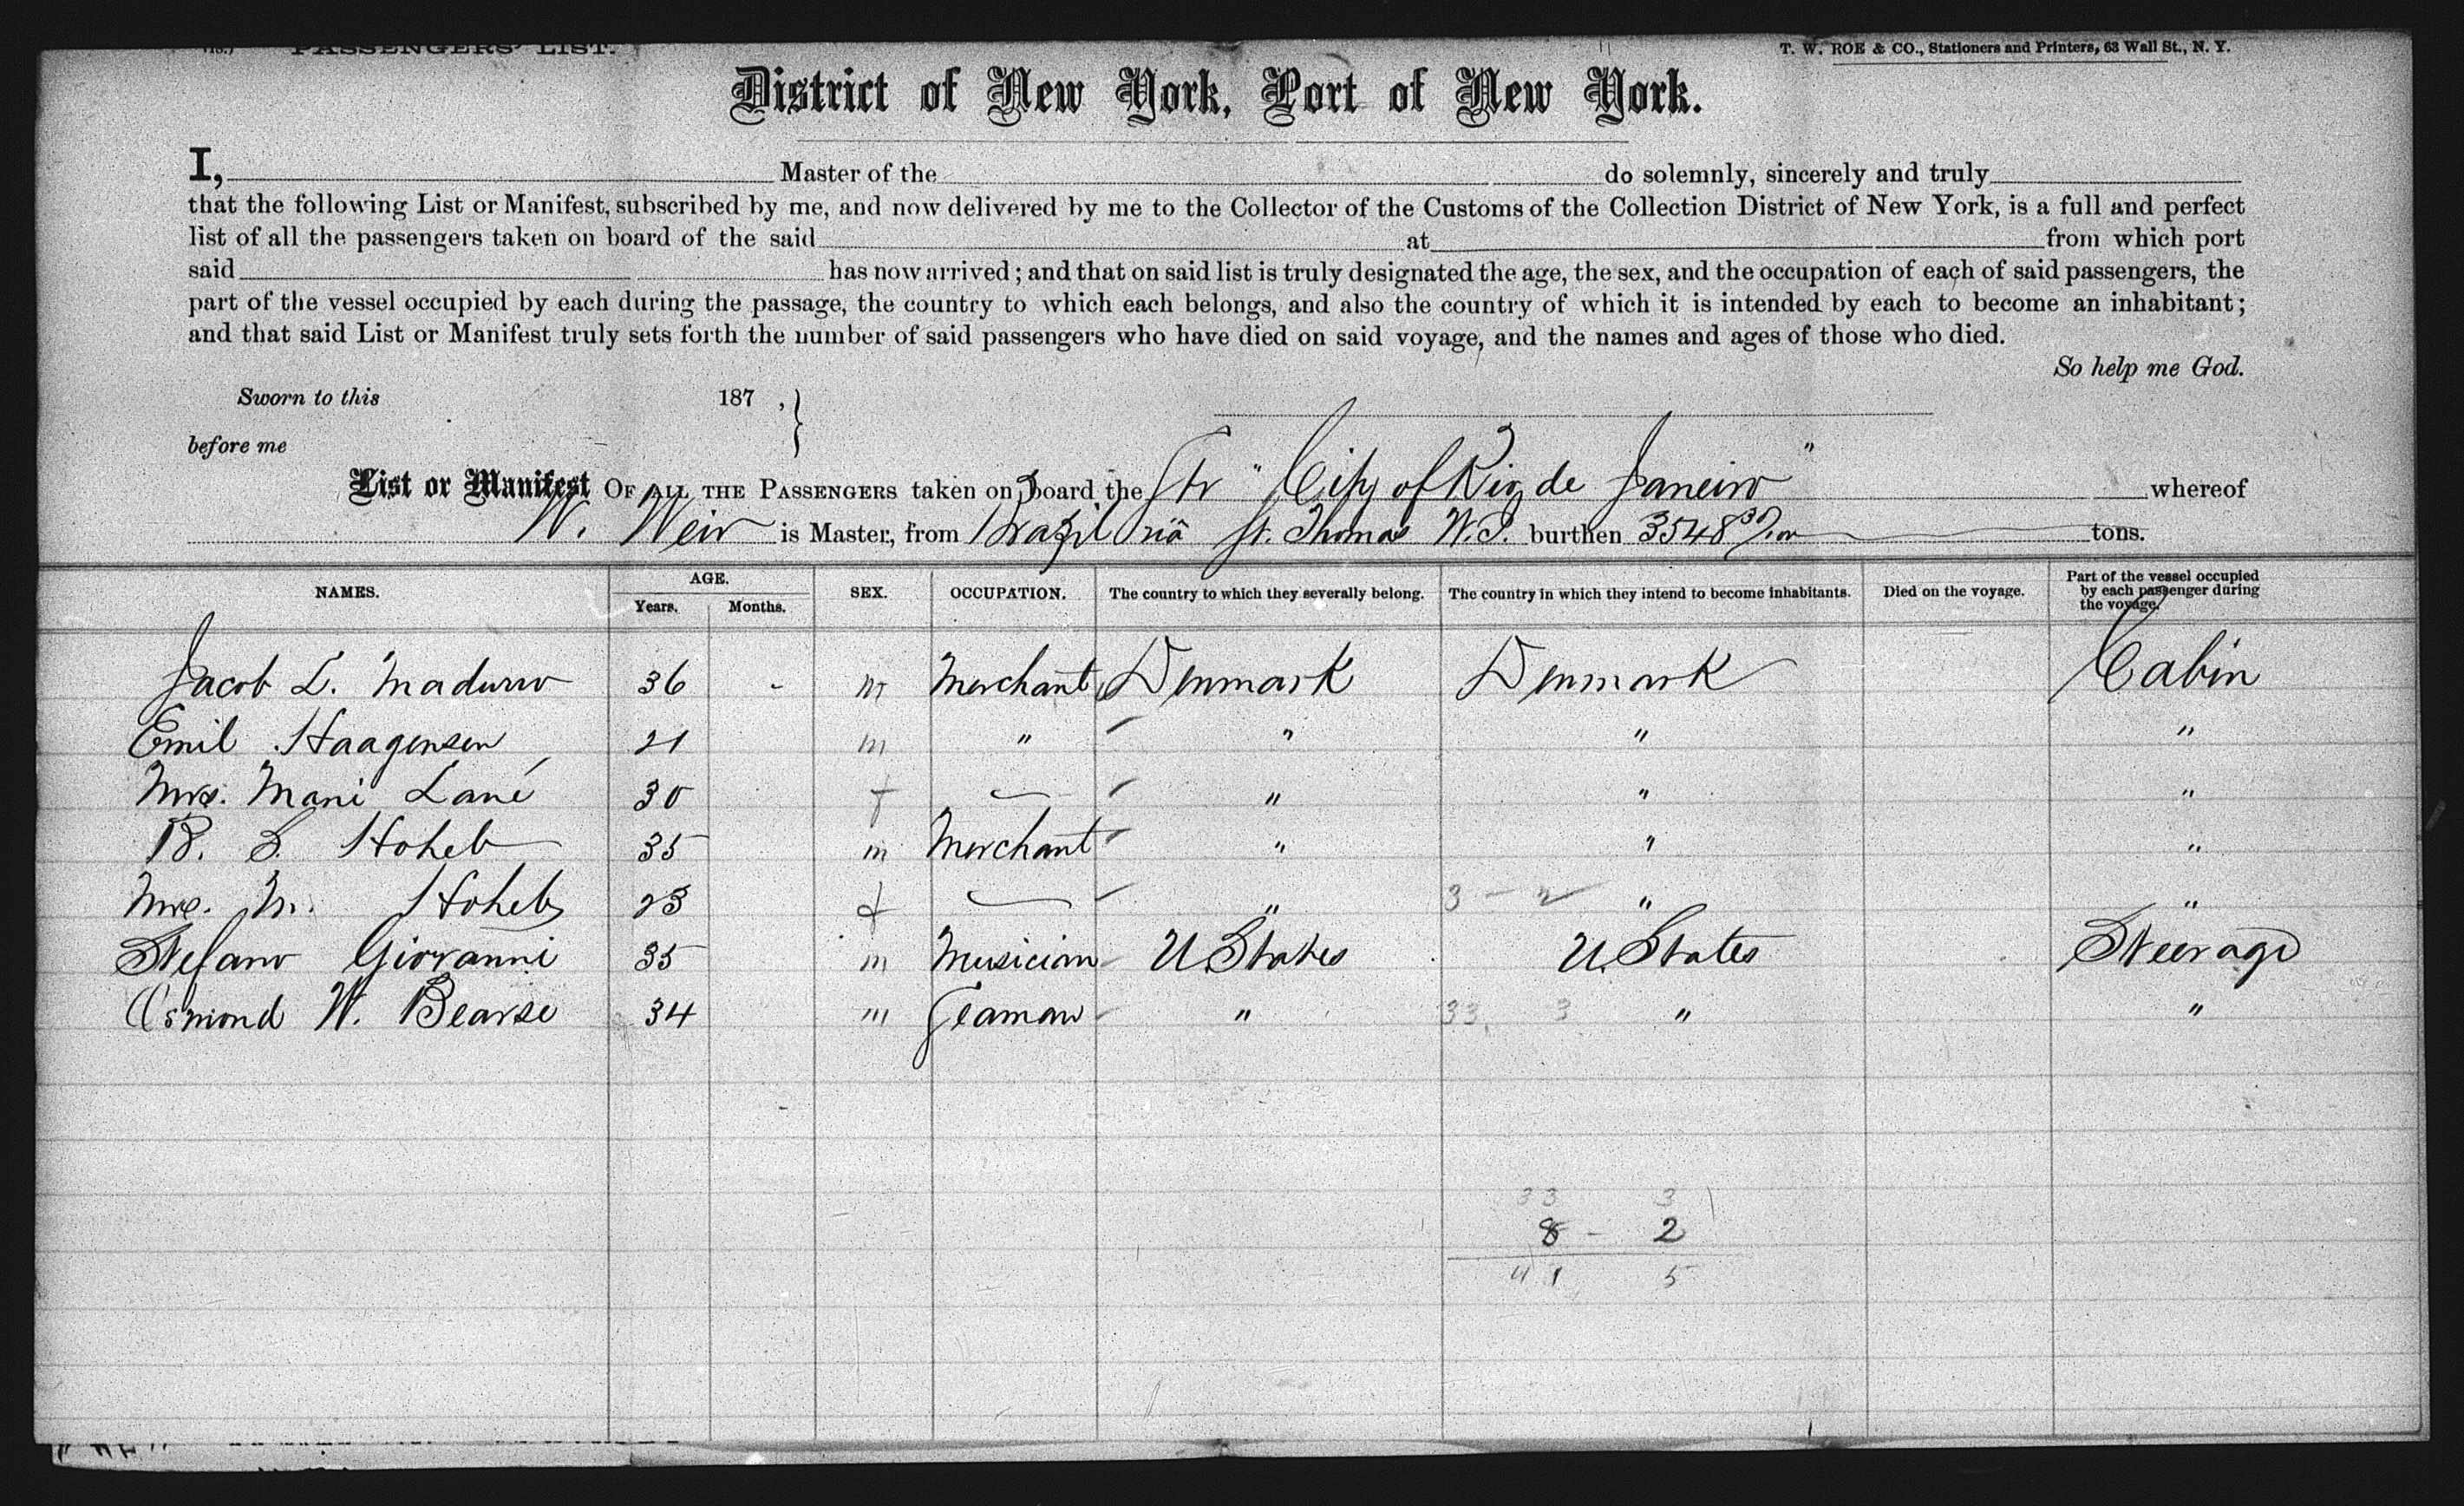 PASSENGERS' LIST.
T. W. ROE & CO., Stationers and Printers, 63 Wall St., N. Y.
District of New York, Port of New York.
I, Master of the do solemnly, sincerely and truly
that the following List or Manifest, subscribed by me, and now delivered by me to the Collector of the Customs of the Collection District of New York, is a full and perfect
list of all the passengers taken on board of the said at from which port
said has now arrived; and that on said list is truly designated the age, the sex, and the occupation of each of said passengers, the
part of the vessel occupied by each during the passage, the country to which each belongs, and also the country of which it is intended by each to become an inhabitant;
and that said List or Manifest truly sets forth the number of said passengers who have died on said voyage, and the names and ages of those who died.
So help me God.
Sworn to this 187 , }
before me
List or Manifest OF ALL THE PASSENGERS taken on board the Str "City of Rio de Janeiro" whereof
W. Weir is Master, from Brazil via St. Thomas W.I. burthen 3548 tons.
NAMES. AGE. SEX. OCCUPATION. The country to which they severally belong. The country in which they intend to become inhabitants. Died on the voyage. Part of the vessel occupied by each passenger during the voyage.
Years. Months.
Jacob L. Maduro 36 - m Merchant Denmark Denmark Cabin
Emil Haagensen 21 m " " " "
Mrs. Mani Lané 30 f — " " "
B. S. Hoheb 35 m Merchant " " "
Mrs. M. Hoheb 23 f — " 3 - 2 " "
Stefano Giovanni 35 m Musician U. States U. States Steerage
Osmond W. Bearse 34 m Seaman " 33 3 " "
33 3
8 - 2
41 5